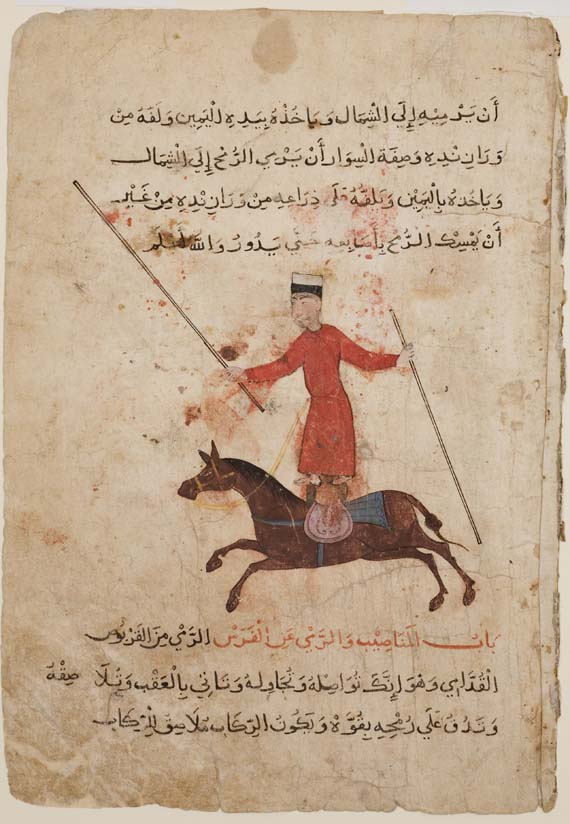 أَنْ يَرْمِيَهِ إِلَي الْشِمَالِ وَيَاخُذُهُ بِيَدِهِ الْيَمِينِ وَلَفَّهُ مِنْ
وَرَانِ نْدِهِ وَصِفَةَ السِوَارِ أَنْ يَرْمِي الرُمْحَ إِلَي الْشِمَالِ
وَيَاخدهُ بِالْيَمِيْنِ وَيَلفّهُ عَلَي ذِرَاعِهِ مِنْ وَرَانِ نْدِهِ مِنْ غَيْرِ
أَنْ يَمْسِكَ الرُمْحَ بِأَصَابِعِهِ حَتَّي يَدُورُ وَاللَّهُ أَعْلَم
بَابُ المَنَاصِيْبِ وَالرَمْيِ عَنِ الْفَرَسِ الرَمْيُ مِنَ القَرَبُوصِ
الْقُدَّامِي وَهُوَ إِنَّكَ تُوَاصِلَهُ وَ لَهُ وَتَاتِي بِالْعَقْبِ وَ صِفْهُ
وَتَدُقُ عَلَي رُمْحِهِ بِقُوَّهْ وَيَكُونُ الرِكَابُ مُلَاصِقَ لِلْرِكَابِ